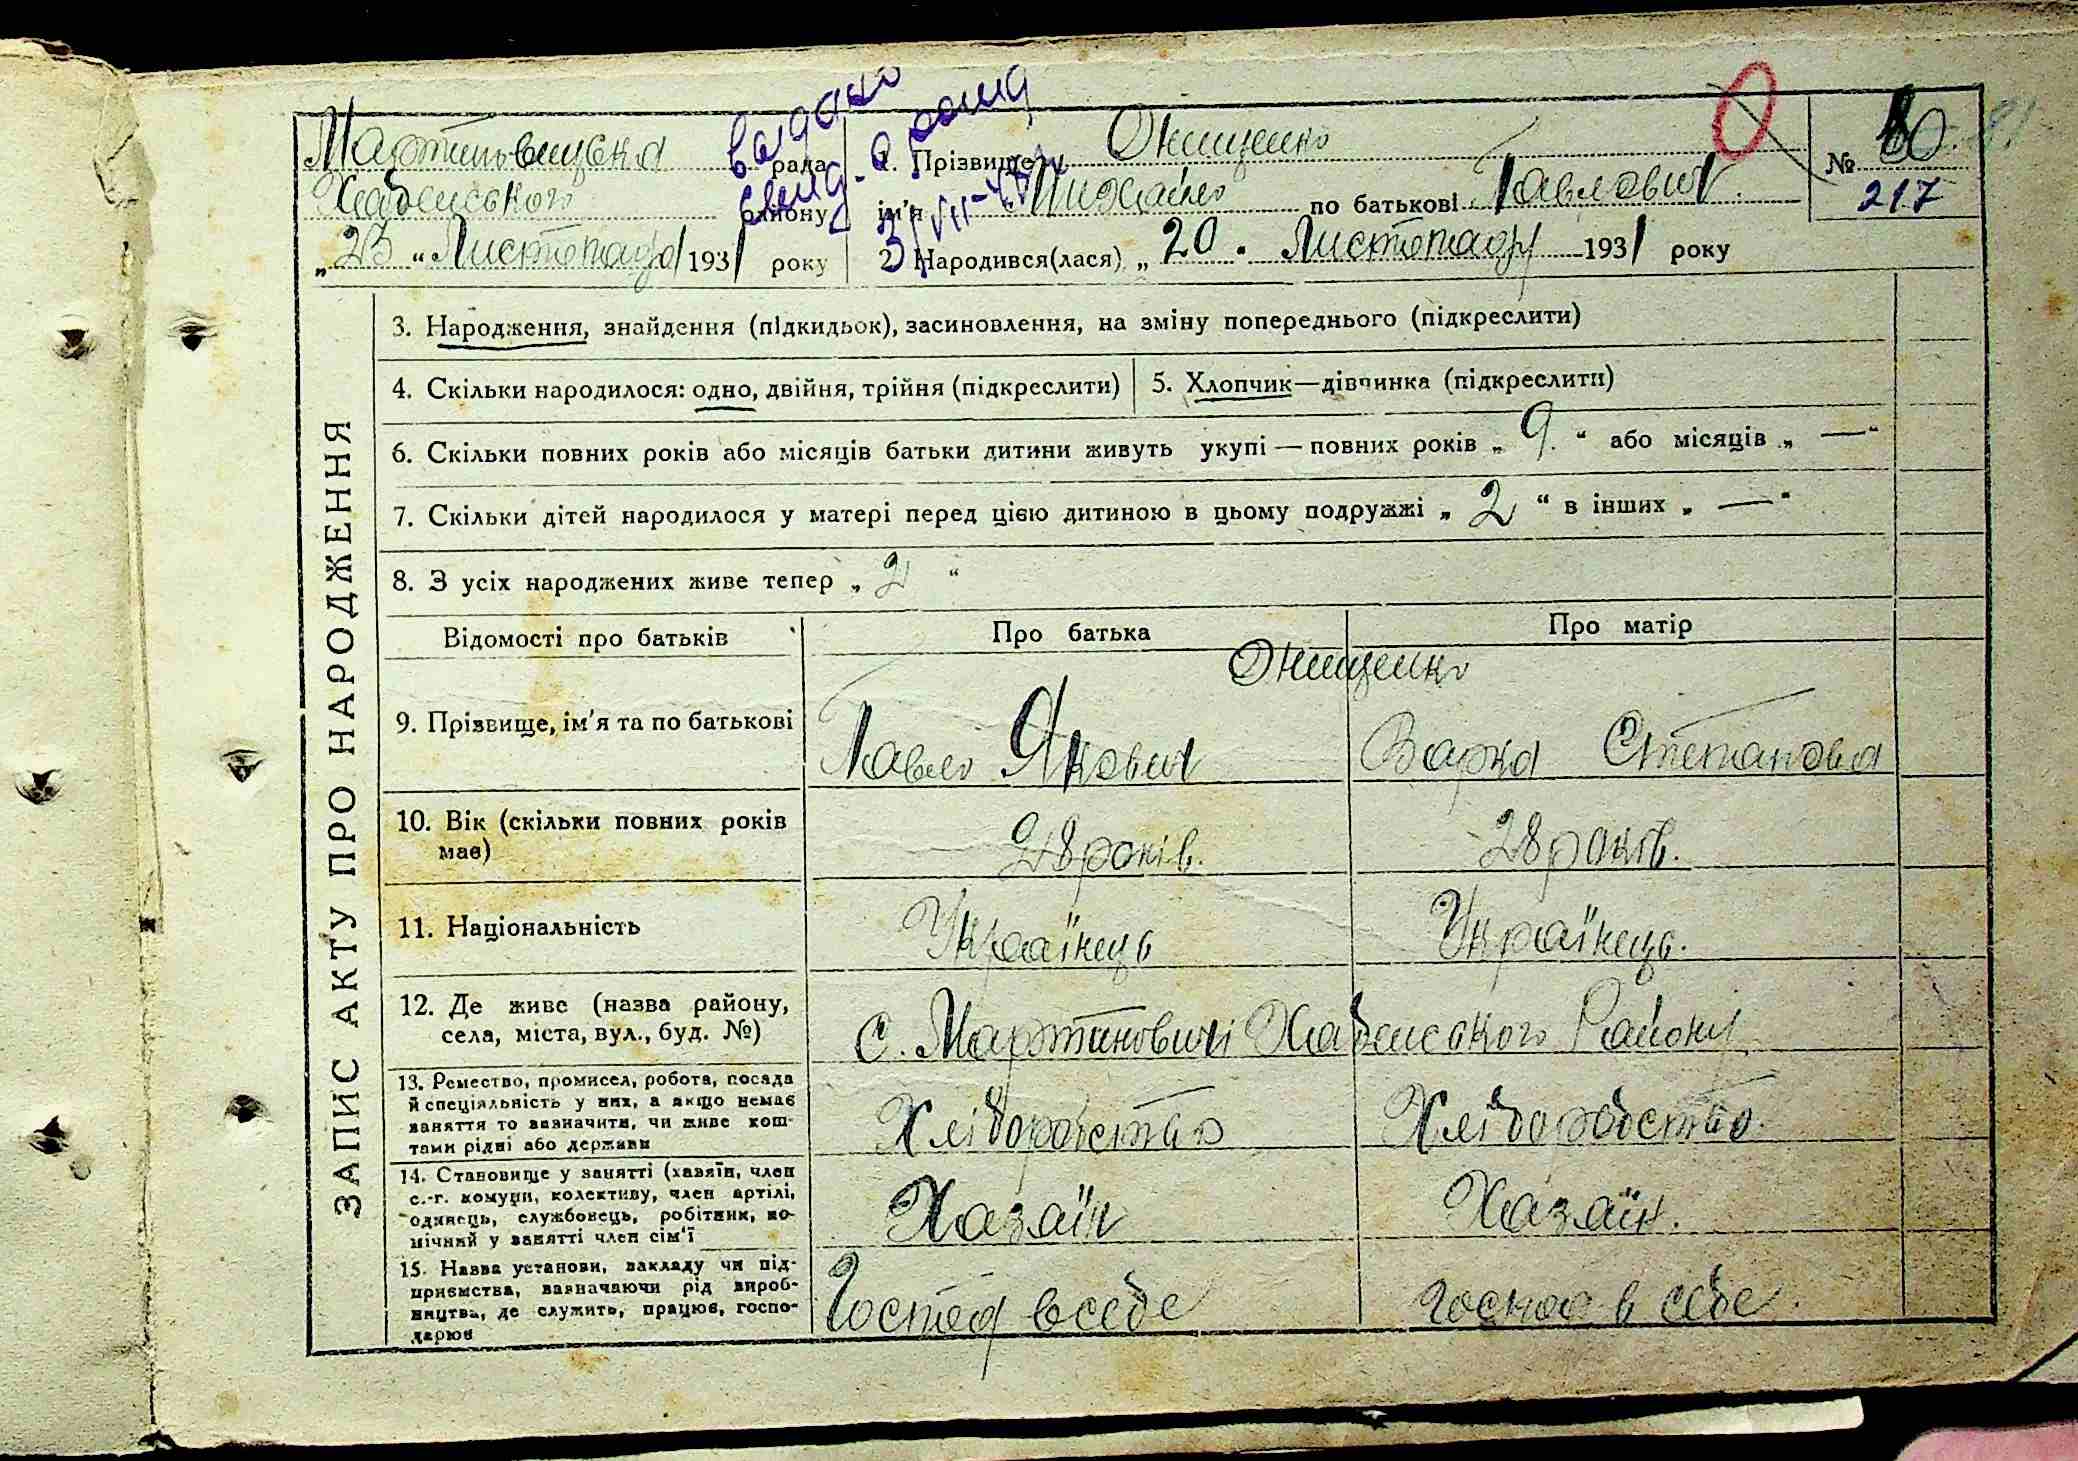 Мартиновицька рада
Хабенського району
„23“ Листопада 1931 року
видано
свид. о рожд
1. Прізвище Онищенко
ім'я Михайло по батькові Павлович.
2. Народився(лася) „20. Листопаду 1931 року
№ 80.
217
ЗАПИС АКТУ ПРО НАРОДЖЕННЯ
3. Народження, знайдення (підкидьок), засиновлення, на зміну попереднього (підкреслити)
4. Скільки народилося: одно, двійня, трійня (підкреслити)
5. Хлопчик—дівчинка (підкреслити)
6. Скільки повних років або місяців батьки дитини живуть укупі — повних років „ 9. “ або місяців „ — “
7. Скільки дітей народилося у матері перед цією дитиною в цьому подружжі „ 2 “ в інших „ — “
8. З усіх народжених живе тепер „ 2 “
Відомості про батьків
Про батька
Про матір
Онищенко
9. Прізвище, ім'я та по батькові
Павло Якович
Варка Степановна
10. Вік (скільки повних років
має)
28 років.
28 років.
11. Національність
Українець
Українець.
12. Де живе (назва району,
села, міста, вул., буд. №)
с. Мартиновичі Хабенського Району
13. Ремество, промисел, робота, посада
й спеціяльність у них, а якщо немає
заняття то зазначити, чи живе кош-
тами рідні або держави
Хліборобство
Хліборобство.
14. Становище у занятті (хазяїн, член
с.-г. комуни, колективу, член артілі,
одинець, службовець, робітник, по-
мічний у занятті член сім'ї
Хазаїн
Хазаїн.
15. Назва установи, закладу чи під-
приємства, зазначаючи рід вироб-
ництва, де служить, працює, госпо-
дарює
в себе
в себе.